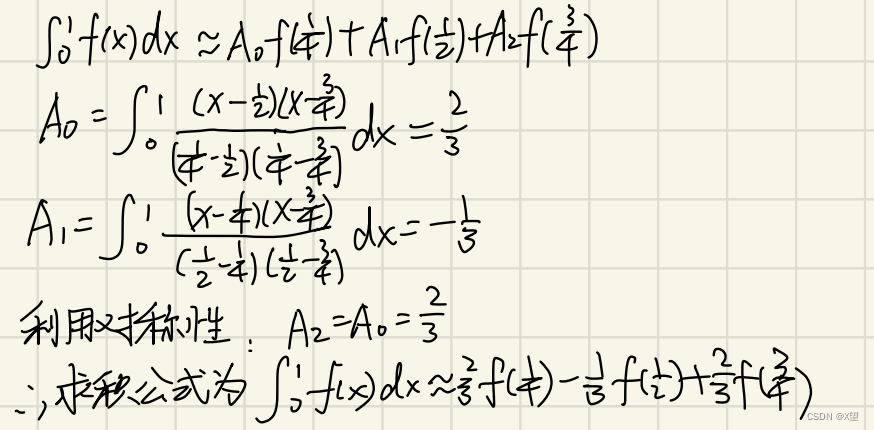 ∫₀¹ f(x)dx ≈ A₀f(1/4)+A₁f(1/2)+A₂f(3/4)
A₀ = ∫₀¹ (x-1/2)(x-3/4)/((1/4-1/2)(1/4-3/4)) dx = 2/3
A₁ = ∫₀¹ (x-1/4)(x-3/4)/((1/2-1/4)(1/2-3/4)) dx = -1/3
利用对称性: A₂=A₀=2/3
∴求积公式为 ∫₀¹ f(x)dx≈2/3 f(1/4)-1/3 f(1/2)+2/3 f(3/4)
CSDN @X望